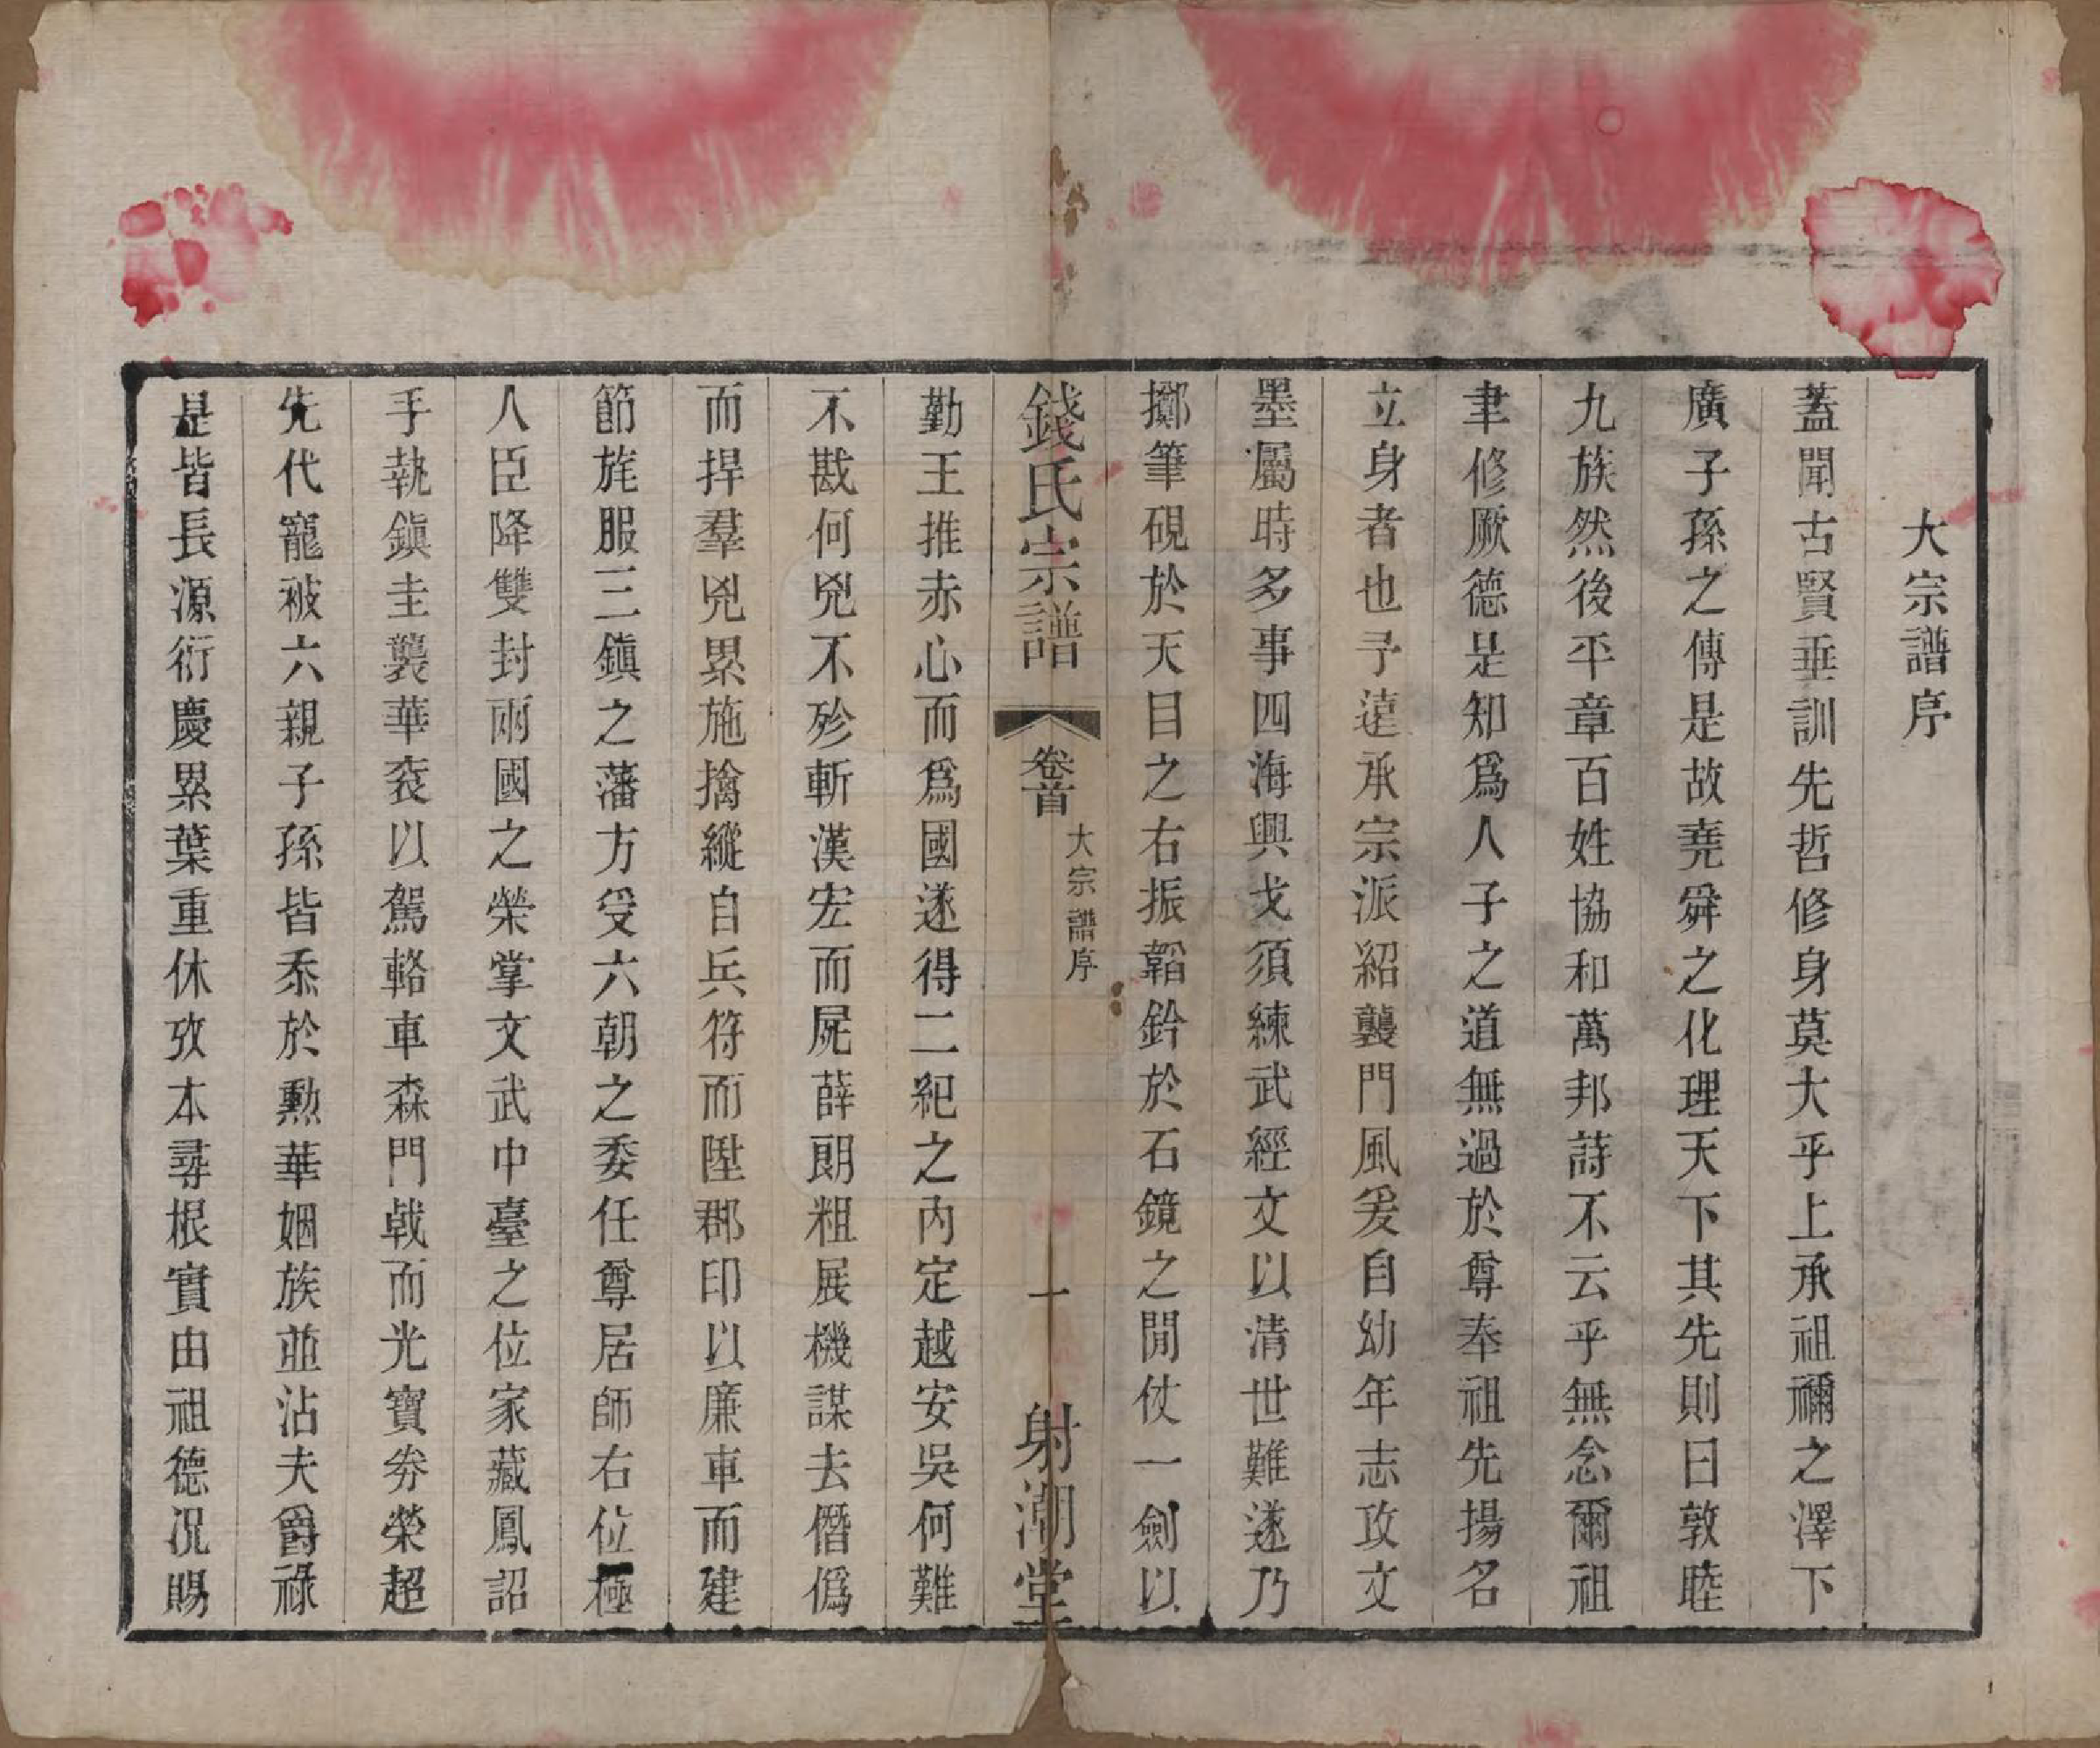 大宗譜序
蓋聞古賢垂訓先哲修身莫大乎上承祖禰之澤下
廣子孫之傳是故堯舜之化理天下其先則曰敦睦
九族然後平章百姓協和萬邦詩不云乎無念爾祖
聿修厥德是知爲人子之道無過於尊奉祖先揚名
立身者也予遠承宗派紹襲門風爰自幼年志攻文
墨屬時多事四海興戈須練武經文以清世難遂乃
擲筆硯於天目之右振韜鈐於石鏡之閒仗一劍以
錢氏宗譜 卷首 大宗譜序 一 射潮堂
勤王推赤心而爲國遂得二紀之內定越安吳何難
不戡何兇不殄斬漢宏而屍薛朗粗展機謀去僭僞
而捍羣兇累施擒縱自兵符而陞郡印以廉車而建
節旄服三鎭之藩方受六朝之委任尊居師右位極
人臣降雙封兩國之榮掌文武中臺之位家藏鳳詔
手執鎭圭襲華衮以駕輅車森門戟而光寶劵榮超
先代寵被六親子孫皆忝於勲華姻族並沾夫爵祿
是皆長源衍慶累葉重休攷本尋根實由祖德況賜